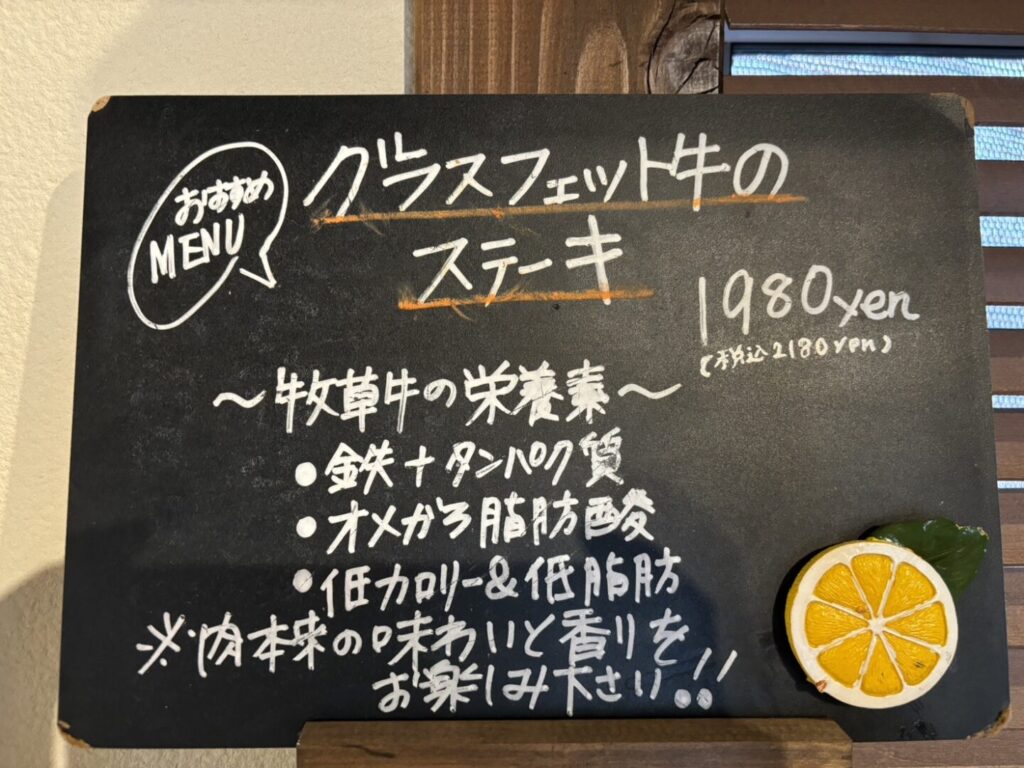 おすすめ
MENU
グラスフェット牛の
ステーキ
1980yen
(税込2180yen)
〜牧草牛の栄養素〜
•鉄+タンパク質
•オメガ3脂肪酸
•低カロリー&低脂肪
※肉本来の味わいと香りを
お楽しみ下さい!!